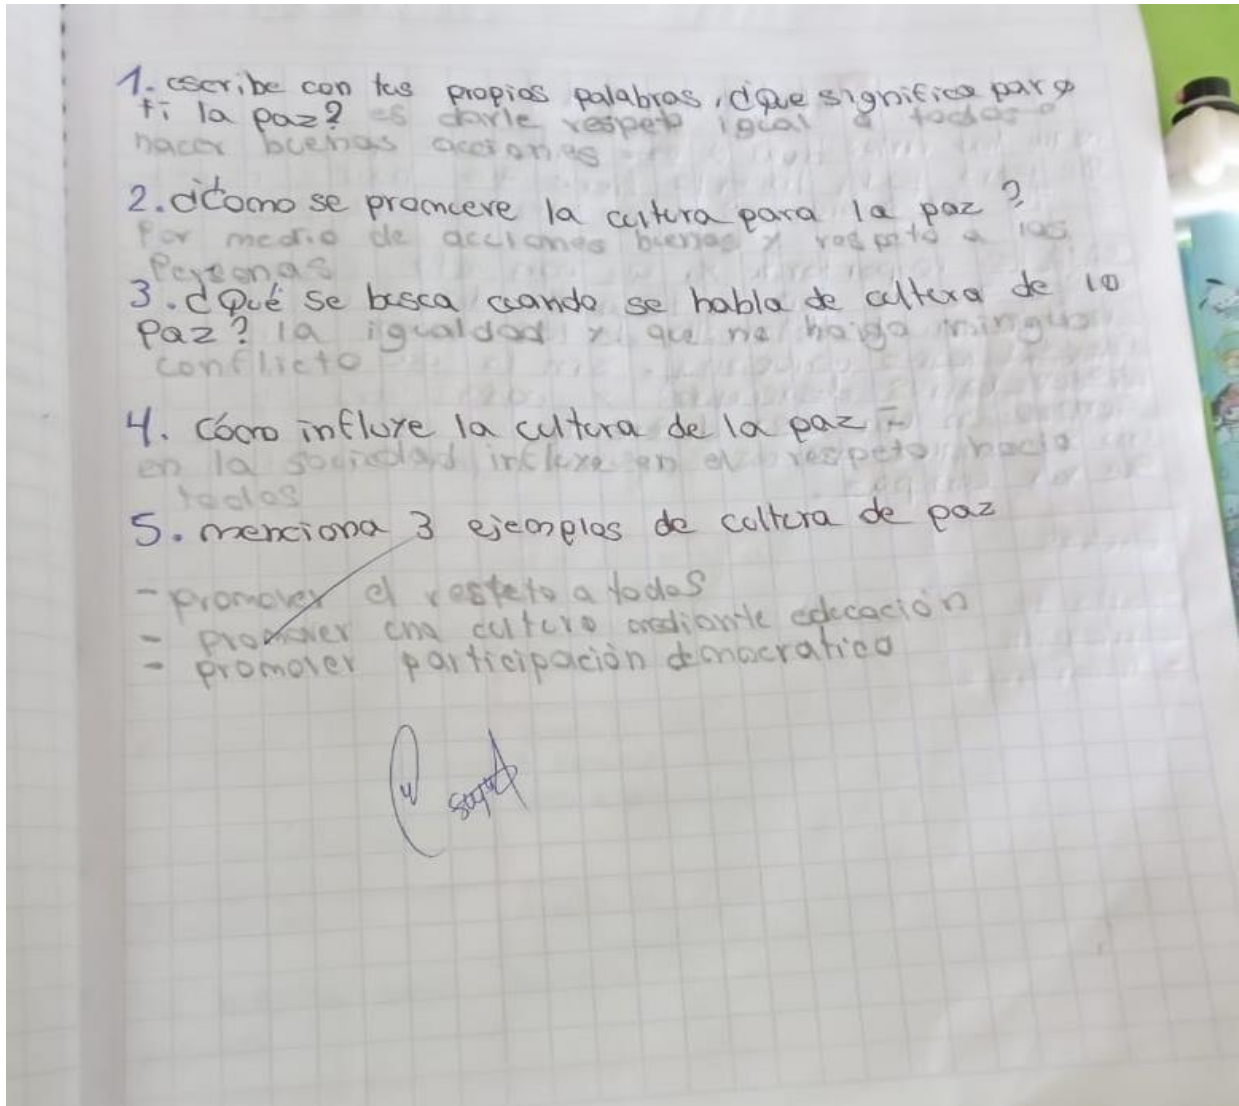 1. escribe con tus propios palabras, ¿Que significa para
ti la paz? es darle respeto igual a todos o
hacer buenas acciones
2. ¿Como se promueve la cultura para la paz?
Por medio de acciones buenas y respeto a las
Personas
3. ¿Qué se busca cuando se habla de cultura de la
Paz? la igualdad y que no haiga ningun
conflicto
4. Cómo influye la cultura de la paz -
en la sociedad influye en el respeto hacia
todos
5. menciona 3 ejemplos de cultura de paz
- promover el resfeto a todos
- promover una cultura mediante educación
- promover participación democratica